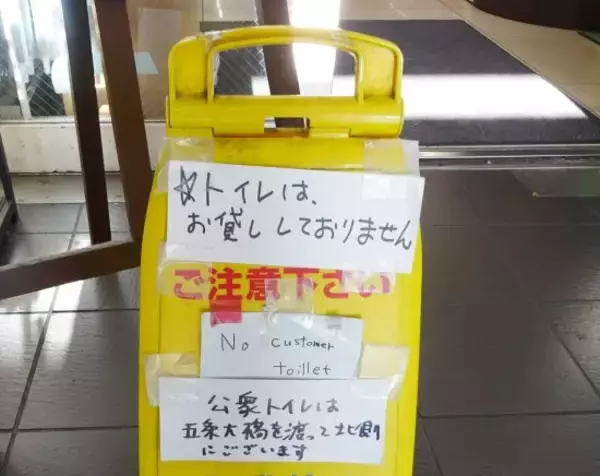 ☆トイレは、
お貸ししておりません
ご注意下さい
No customer
toillet
公衆トイレは
五条大橋を渡って北側
にございます